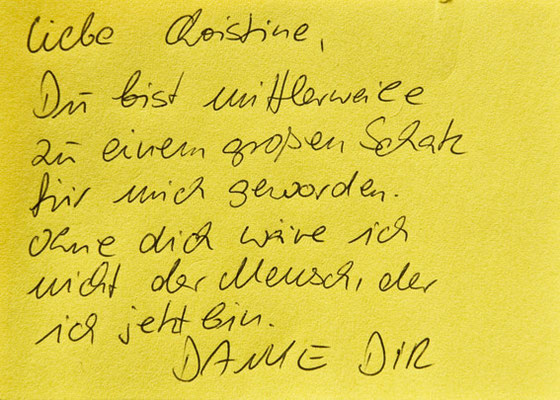 Liebe Christine,
Du bist mittlerweile
zu einem großen Schatz
für mich geworden.
Ohne dich wäre ich
nicht der Mensch, der
ich jetzt bin.
DANKE DIR